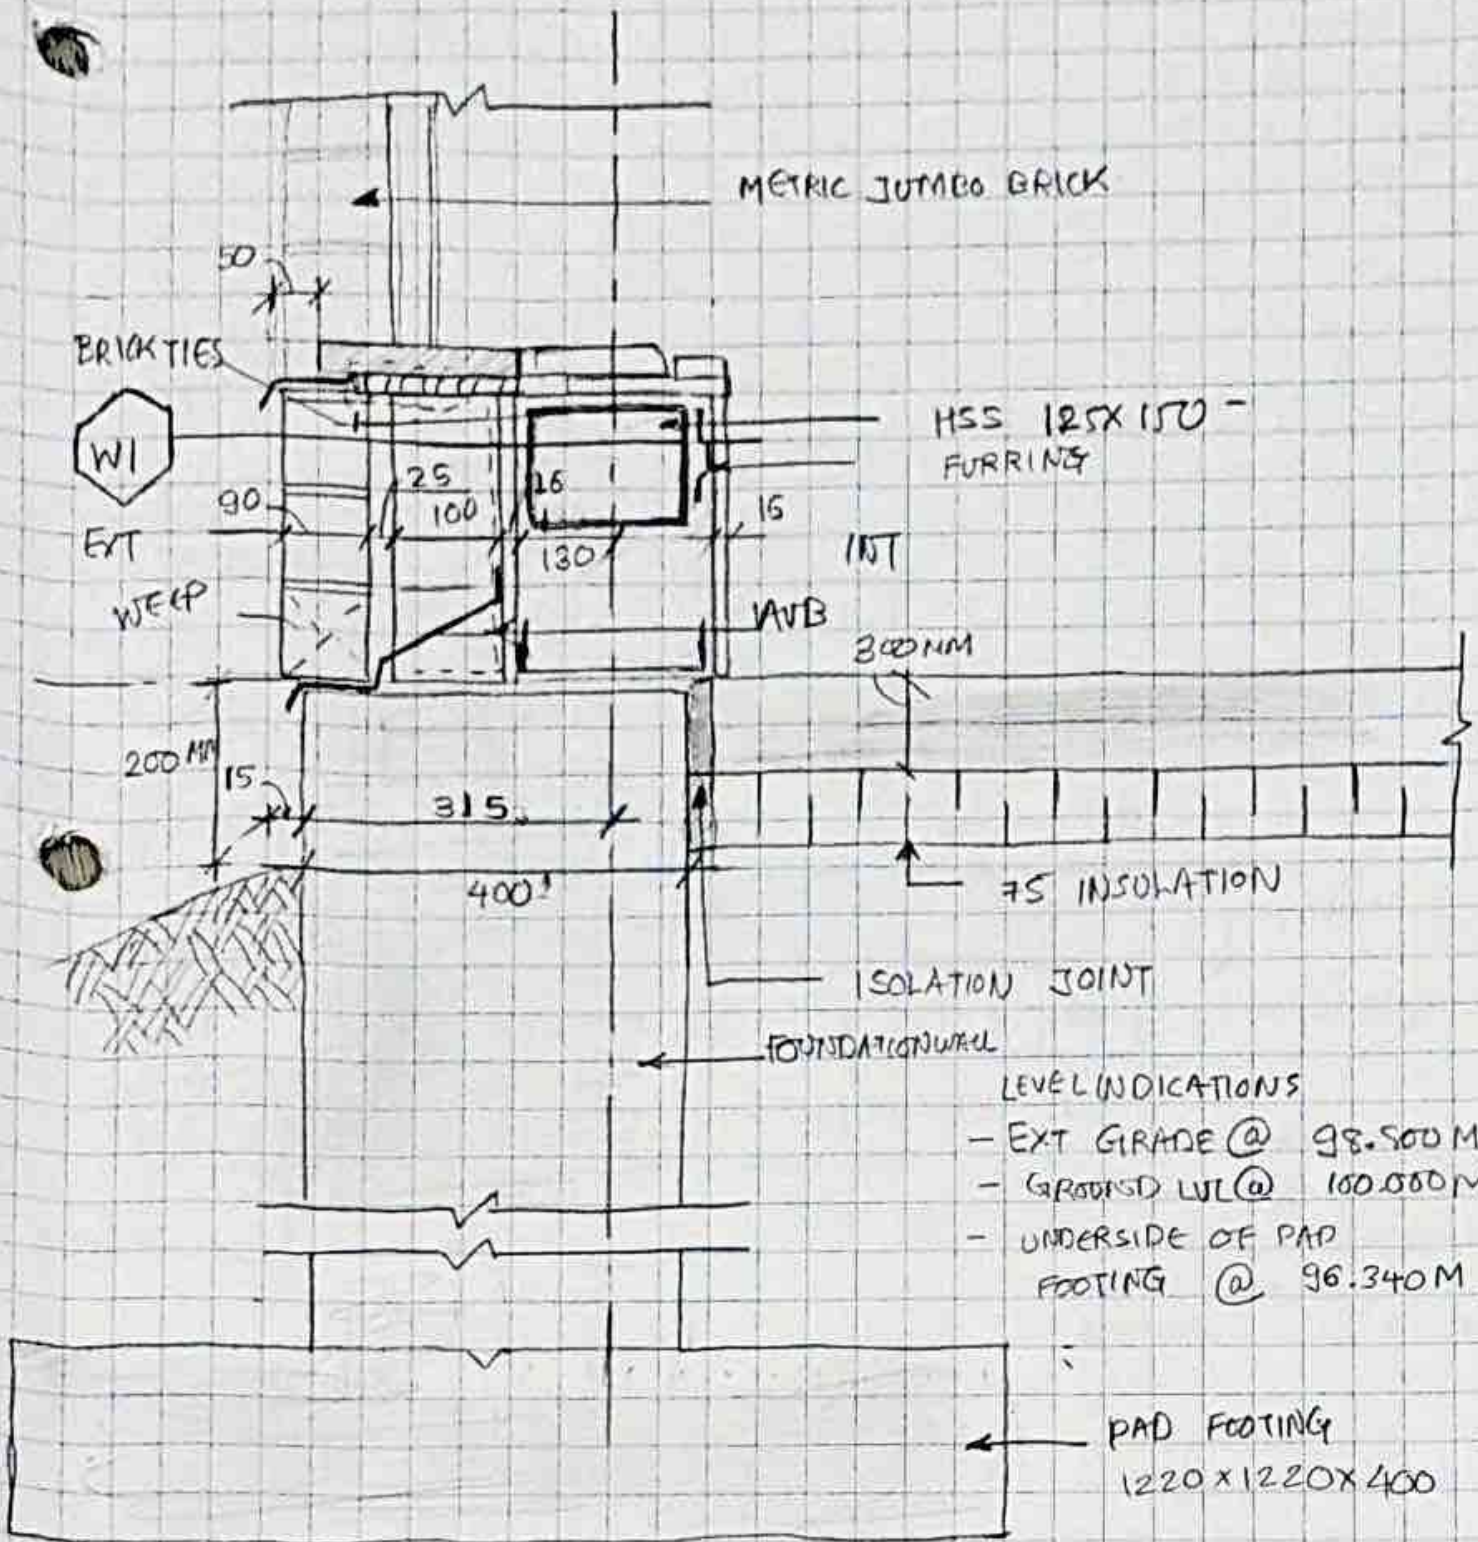 METRIC JUMBO BRICK
50
BRICK TIES
W1
HSS 125X150
FURRING
25
16
90
100
16
EXT
130
INT
WEEP
AVB
300MM
200 MM
15
315
400
75 INSULATION
ISOLATION JOINT
FOUNDATION WALL
LEVEL INDICATIONS
- EXT GRADE @ 98.500 M
- GROUND LVL @ 100.000 M
- UNDERSIDE OF PAD
FOOTING @ 96.340 M
PAD FOOTING
1220 X 1220 X 400